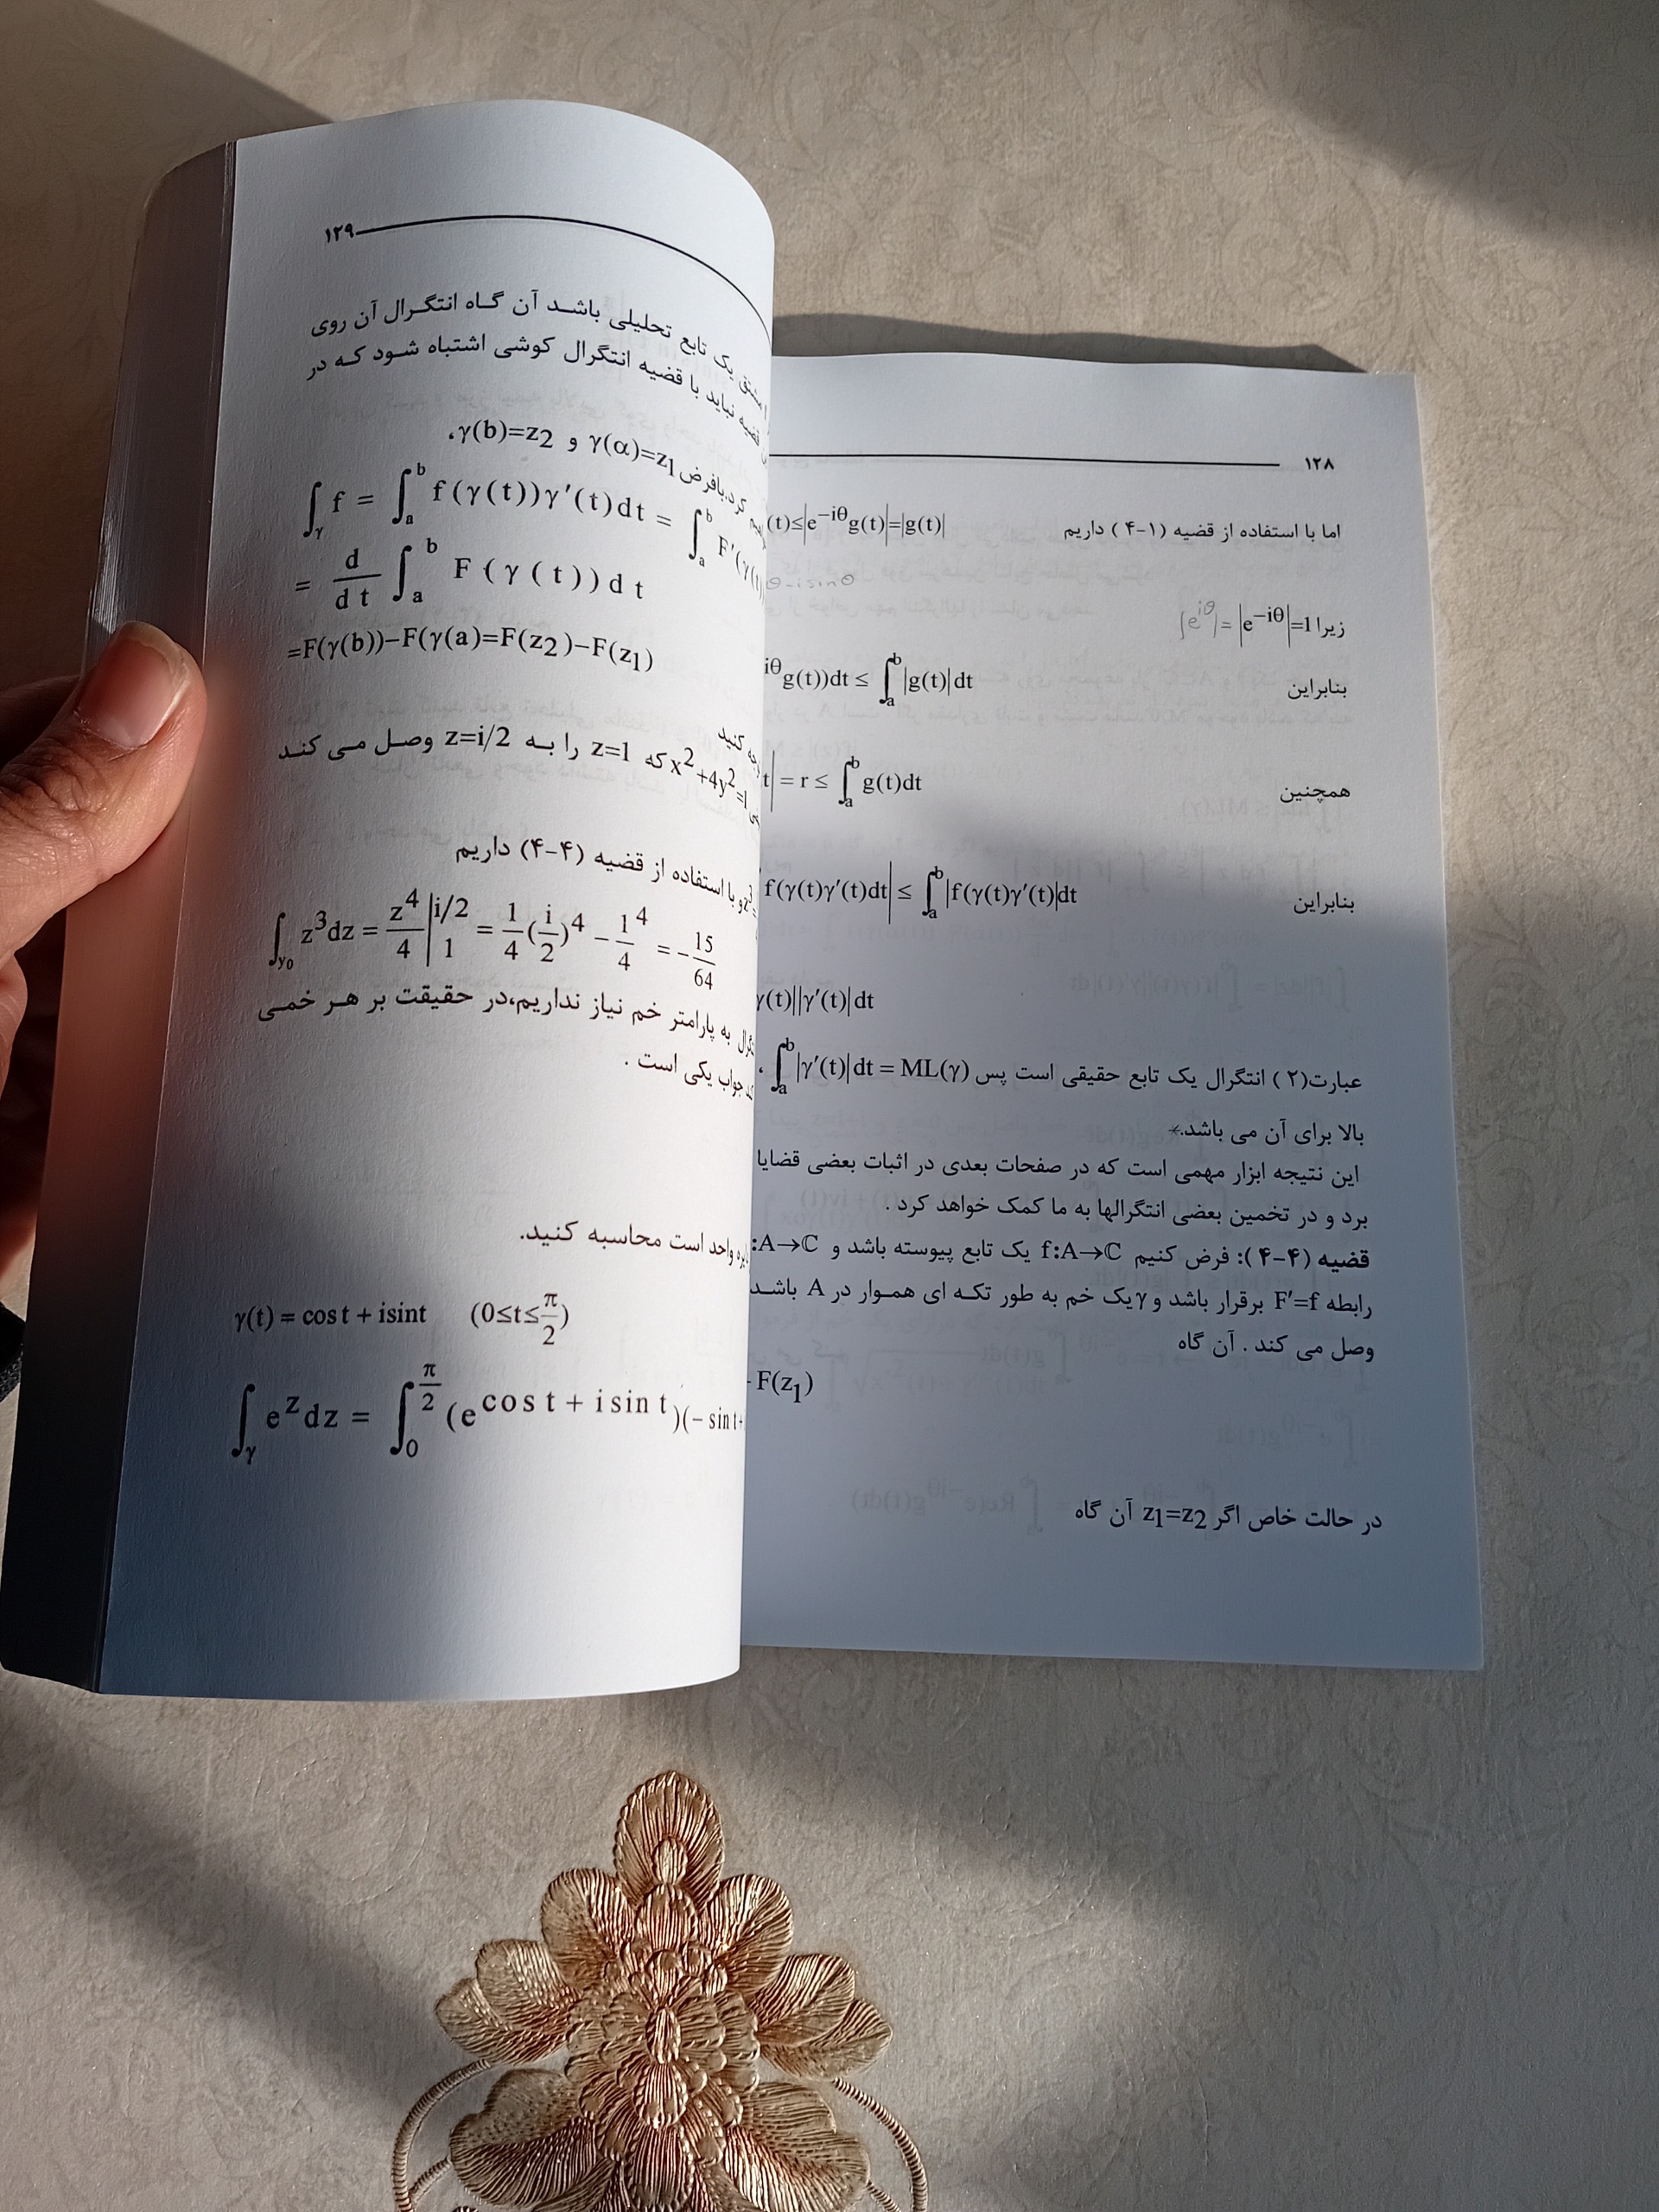 ۱۲۸
اما با استفاده از قضیه (۱-۴) داریم (t)≤|e^{-iθ}g(t)|=|g(t)|
زیرا |e^{iθ}| = |e^{-iθ}|=1
بنابراین iθg(t))dt ≤ ∫_a^b |g(t)|dt
همچنین t| = r ≤ ∫_a^b g(t)dt
بنابراین f(γ(t)γ′(t)dt| ≤ ∫_a^b |f(γ(t)γ′(t)|dt
γ(t)||γ′(t)|dt
عبارت(۲) انتگرال یک تابع حقیقی است پس ∫_a^b |γ′(t)|dt = ML(γ) ،
بالا برای آن می باشد.
این نتیجه ابزار مهمی است که در صفحات بعدی در اثبات بعضی قضایا
برد و در تخمین بعضی انتگرالها به ما کمک خواهد کرد .
قضیه (۴-۴): فرض کنیم f:A→ℂ یک تابع پیوسته باشد و :A→ℂ
رابطه F′=f برقرار باشد و γ یک خم به طور تکه ای هموار در A باشد
وصل می کند . آن گاه
- F(z₁)
در حالت خاص اگر z₁=z₂ آن گاه
۱۲۹
مشتق یک تابع تحلیلی باشد آن گاه انتگرال آن روی
قضیه نباید با قضیه انتگرال کوشی اشتباه شود که در
کرد.بافرض γ(α)=z₁ و γ(b)=z₂،
∫_γ f = ∫_a^b f(γ(t))γ′(t)dt = ∫_a^b F′(γ(t)
= d/dt ∫_a^b F(γ(t))dt
=F(γ(b))−F(γ(a)=F(z₂)−F(z₁)
کنید
x²+4y²=1 که z=1 را به z=i/2 وصل می کند
با استفاده از قضیه (۴-۴) داریم
∫_{γ₀} z³dz = z⁴/4 |_1^{i/2} = 1/4(i/2)⁴ − 1⁴/4 = −15/64
به پارامتر خم نیاز نداریم،در حقیقت بر هر خمی
جواب یکی است .
واحد است محاسبه کنید.
γ(t) = cos t + isint (0≤t≤π/2)
∫_γ e^z dz = ∫_0^{π/2} (e^{cos t + i sin t})(− sin t+